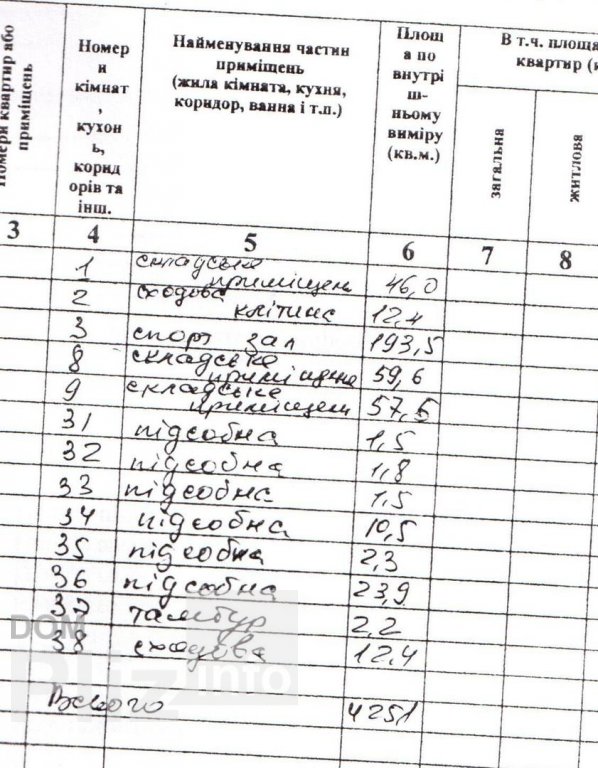 Номери квартир або приміщень
Номер
и
кімнат
,
кухон
ь,
корид
орів та
інш.
Найменування частин
приміщень
(жила кімната, кухня,
коридор, ванна і т.п.)
Площ
а по
внутрі
ш-
ньому
виміру
(кв.м.)
В т.ч. площа
квартир (к
загальна
житлова
3 4 5 6 7 8
1 складське
приміщен 46,0
2 сходова
клітина 12,4
3 спорт зал 193,5
8 складське
приміщене 59,6
9 складське
приміщен 57,5
31 підсобна 1,5
32 підсобна 1,8
33 підсобна 1,5
34 підсобна 10,5
35 підсобна 2,3
36 підсобна 23,9
37 тамбур 2,2
38 сходова 12,4
Всього 4251
DOM
Pliz info